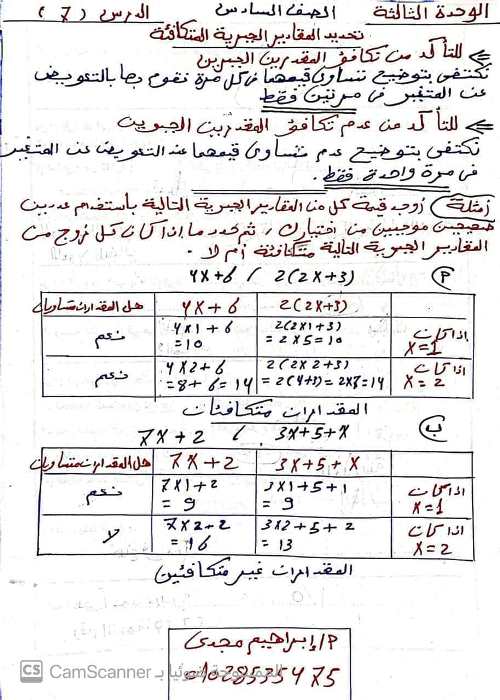 الوحدة الثالثة الصف السادس الدرس (7)
تحديد المقادير الجبرية المتكافئة
للتأكد من تكافؤ المقدرين الجبرين
نكتفى بتوضيح تساوى قيمهما فى كل مرة نقوم بها بالتعويض
عن المتغير فى مرتين فقط
للتأكد من عدم تكافؤ المقدرين الجبرين
نكتفى بتوضيح عدم تساوى قيمهما عند التعويض عن المتغير
فى مرة واحدة فقط.
أمثلة أوجد قيمة كل من المقادير الجبرية التالية باستخدام عددين
صحيحين موجبين من اختيارك، ثم حدد ما إذا كان كل زوج من
المقادير الجبرية التالية متكافئة أم لا.
4x+6 , 2(2x+3)
2(2x+3) 4x+6 هل المقدارات متساويان
اذا كانت x=1 2(2x1+3) = 2x5=10 4x1+6 =10 نعم
اذا كانت x=2 2(2x2+3) = 2(4+3)=2x7=14 4x2+6 =8+6=14 نعم
المقدارات متكافئات
ب 7x+2 , 3x+5+x
3x+5+x 7x+2 هل المقدارات متساويان
اذا كانت x=1 3x1+5+1 = 9 7x1+2 = 9 نعم
اذا كانت x=2 3x2+5+2 = 13 7x2+2 = 16 لا
المقدارات غير متكافئين
م/إبراهيم مجدى
CS الممسوحة ضوئيا بـ CamScanner